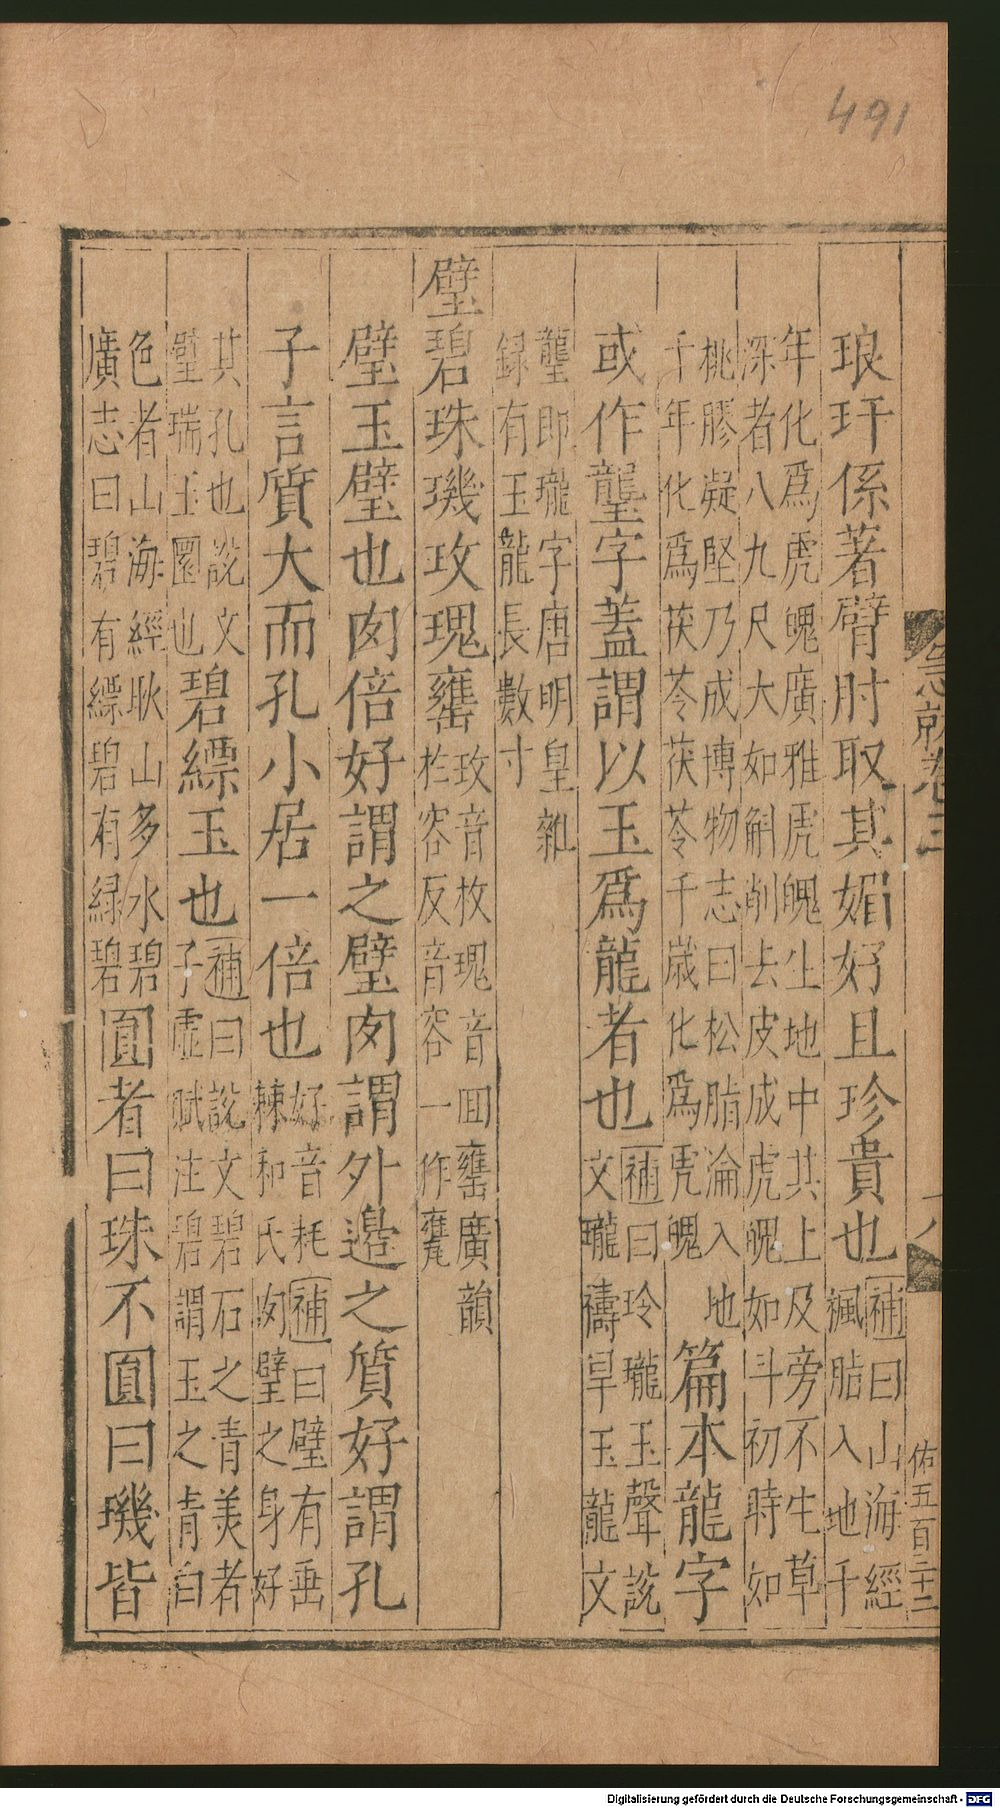 491
琅玕係著臂肘取其媚好且珍貴也補曰山海經
楓脂入地千
年化爲虎魄廣雅虎魄生地中其上及旁不生草
深者八九尺大如斛削去皮成虎魄如斗初時如
桃膠凝堅乃成博物志曰松脂淪入地
千年化爲茯苓茯苓千歲化爲虎魄
篇本龍字
或作蠪字蓋謂以玉爲龍者也補曰玲瓏玉聲説
文瓏禱旱玉龍文
蠪即瓏字唐明皇雜
録有玉龍長數寸
璧碧珠璣玫瑰罋玫音枚瑰音回罋廣韻
於容反音容一作甕
璧玉璧也肉倍好謂之璧肉謂外邊之質好謂孔
子言質大而孔小居一倍也好音耗補曰璧有垂
棘和氏肉璧之身好
其孔也説文
璧瑞玉圜也
碧縹玉也補曰説文碧石之青美者
子虛賦注碧謂玉之青白
色者山海經耿山多水碧
廣志曰碧有縹碧有緑碧
圓者曰珠不圓曰璣皆
急就卷三
八
佑五百三十二
Digitalisierung gefördert durch die Deutsche Forschungsgemeinschaft - DFG